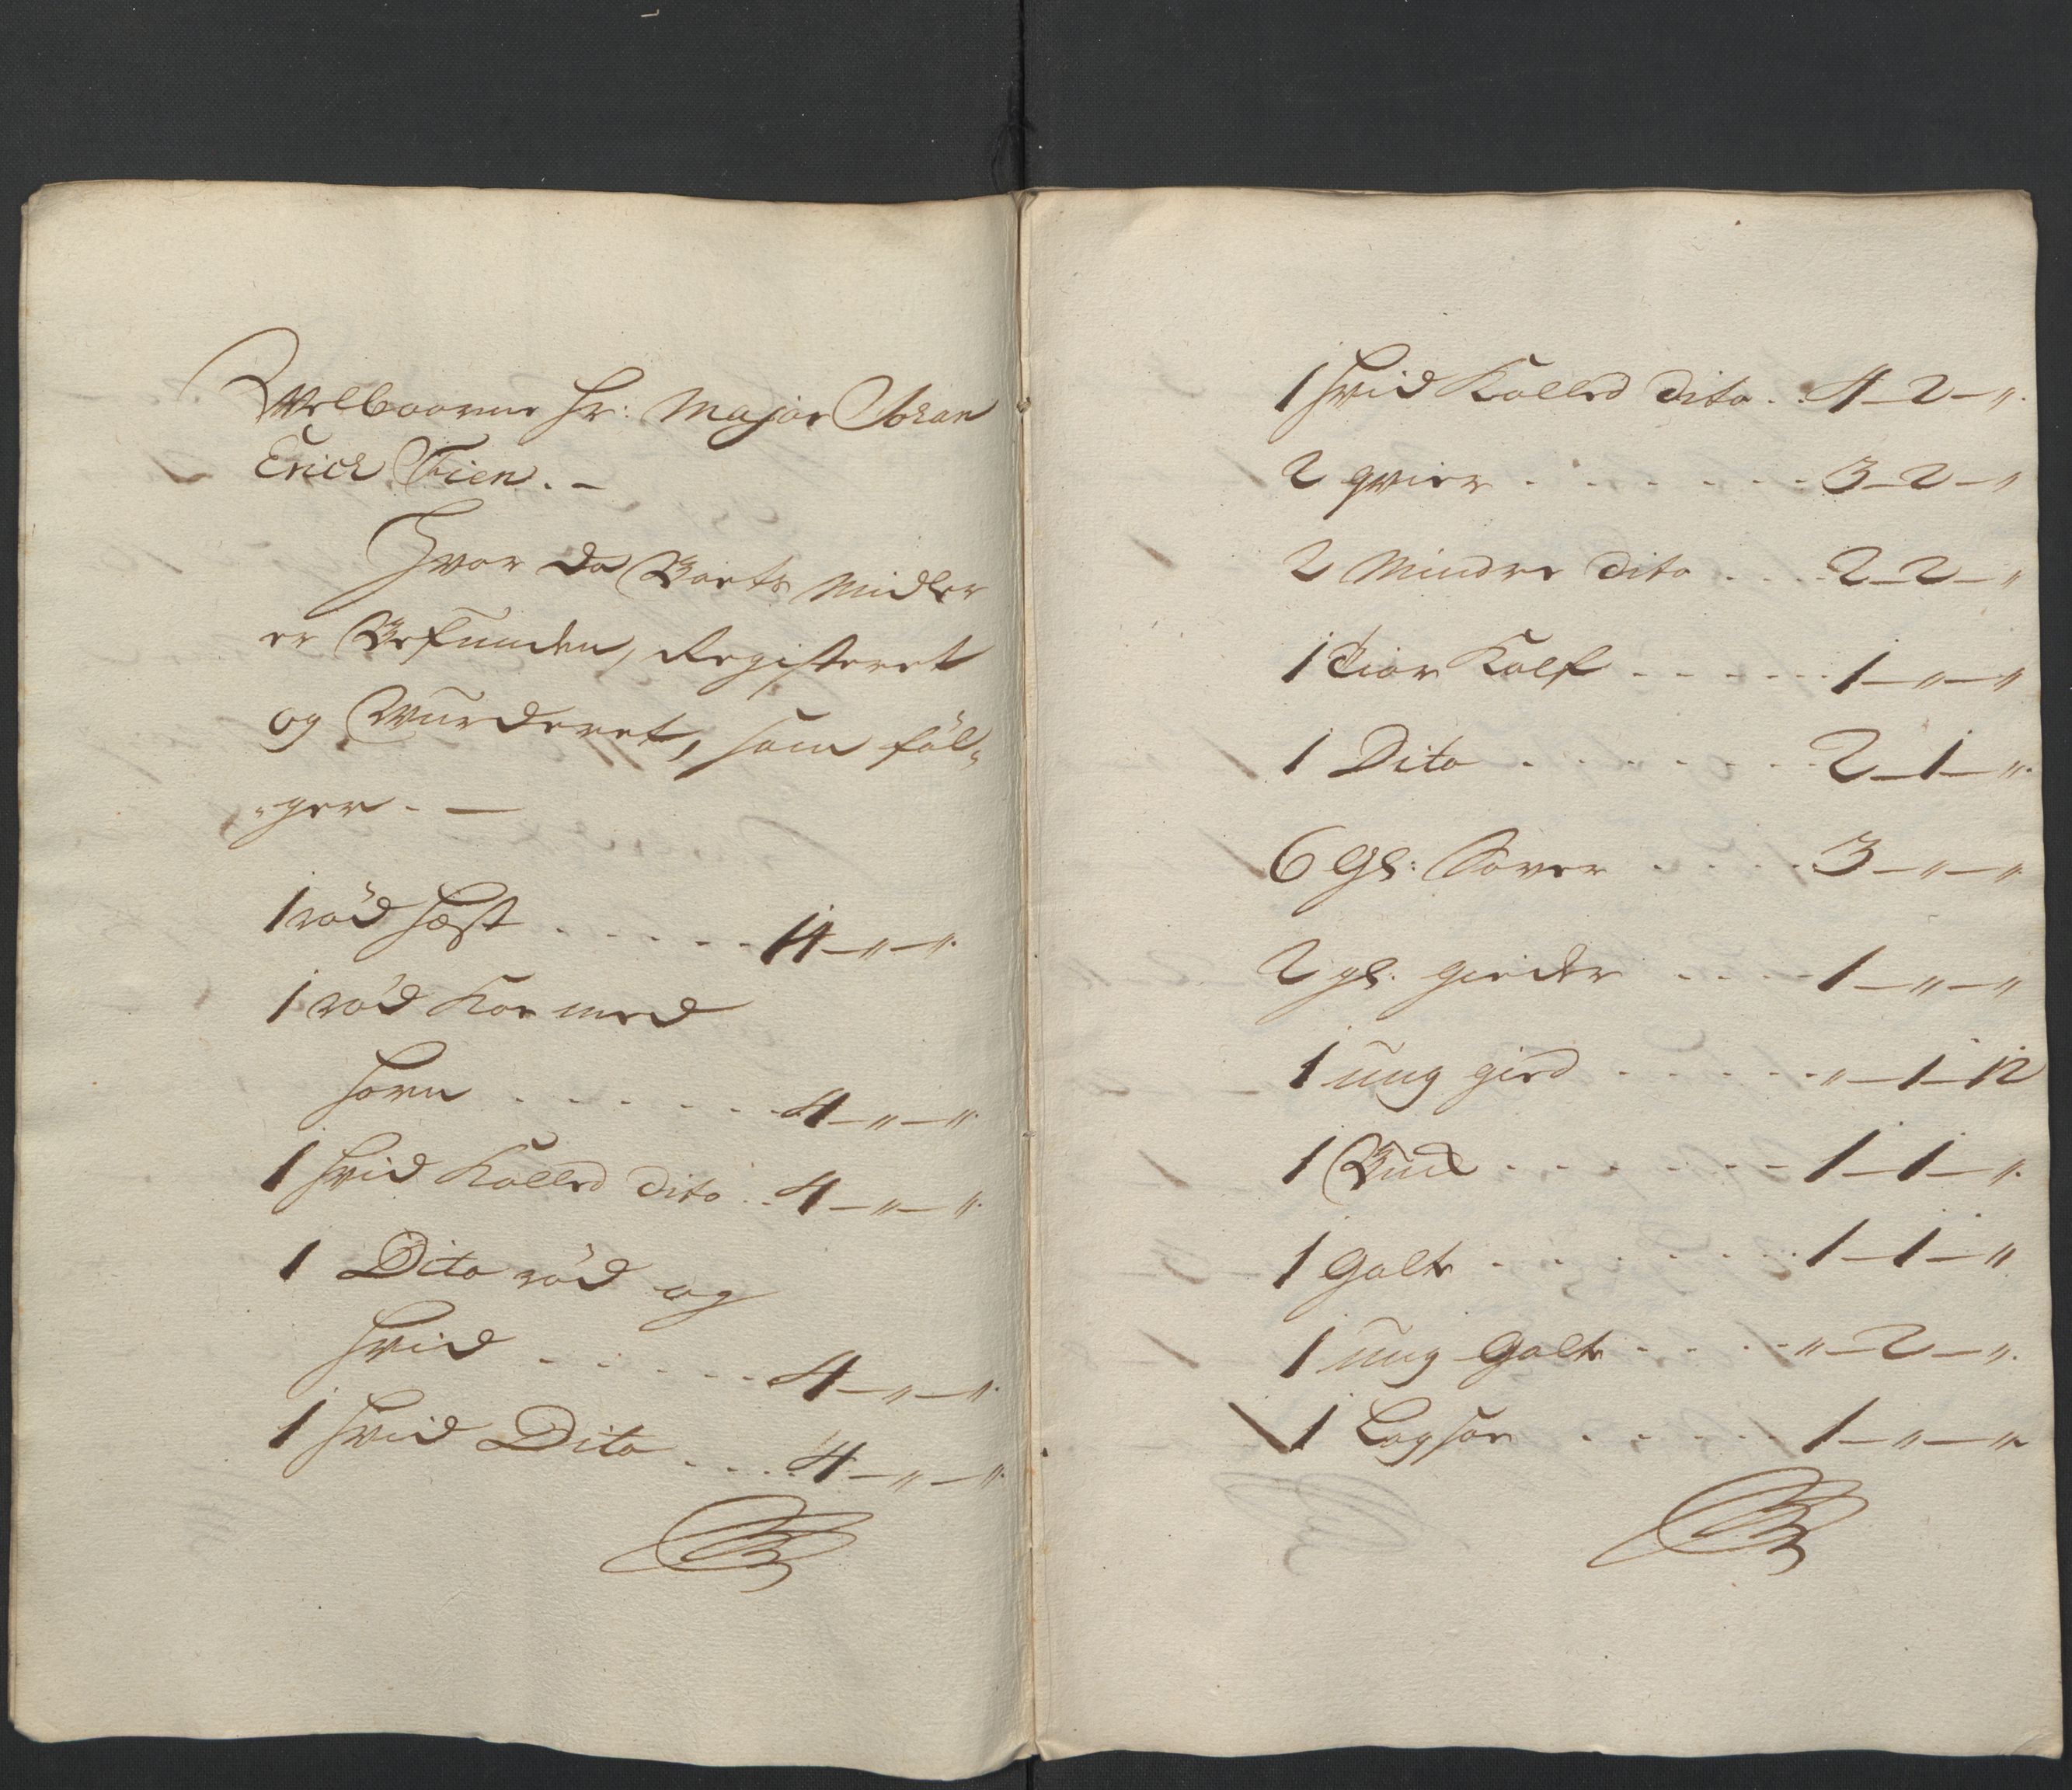 Welbaarne Hr: Major Johan
Erich Fien. —
Hvor da Boets Midler
er Befunden, Registeret
og Wurderet, som föl„
„ger. —
1 röd Hæst . . . . . . 14 — „ — „.
1 röd Koe med
Horn . . . . . . 4 — „ — „.
1 Hvid Kolled Dito . . 4 — „ — „.
1 Dito röd og
Hvid . . . . . . 4 — „ — „.
1 Hvid Dito . . . . 4 — „ — „.
1 Hvid Kolled Dito . . 4 — 2 — „.
2 qvier . . . . . . . 3 — 2 — „
2 Mindre Dito . . . . 2 — 2 — „
1 Kalf . . . . . . 1 — „ — „
1 Dito . . . . . . . 2 — 1 — „.
6 Gl: Sover . . . . . 3 — „ — „
2 gl. gieder . . . . 1 — „ — „
1 ung gied . . . . . . „ — 1 — 12
1 Buk . . . . . . . 1 — 1 — „.
1 Galt . . . . . . . 1 — 1 — „
1 ung Galt . . . . „ — 2 — „.
1 . . . . . 1 — „ — „